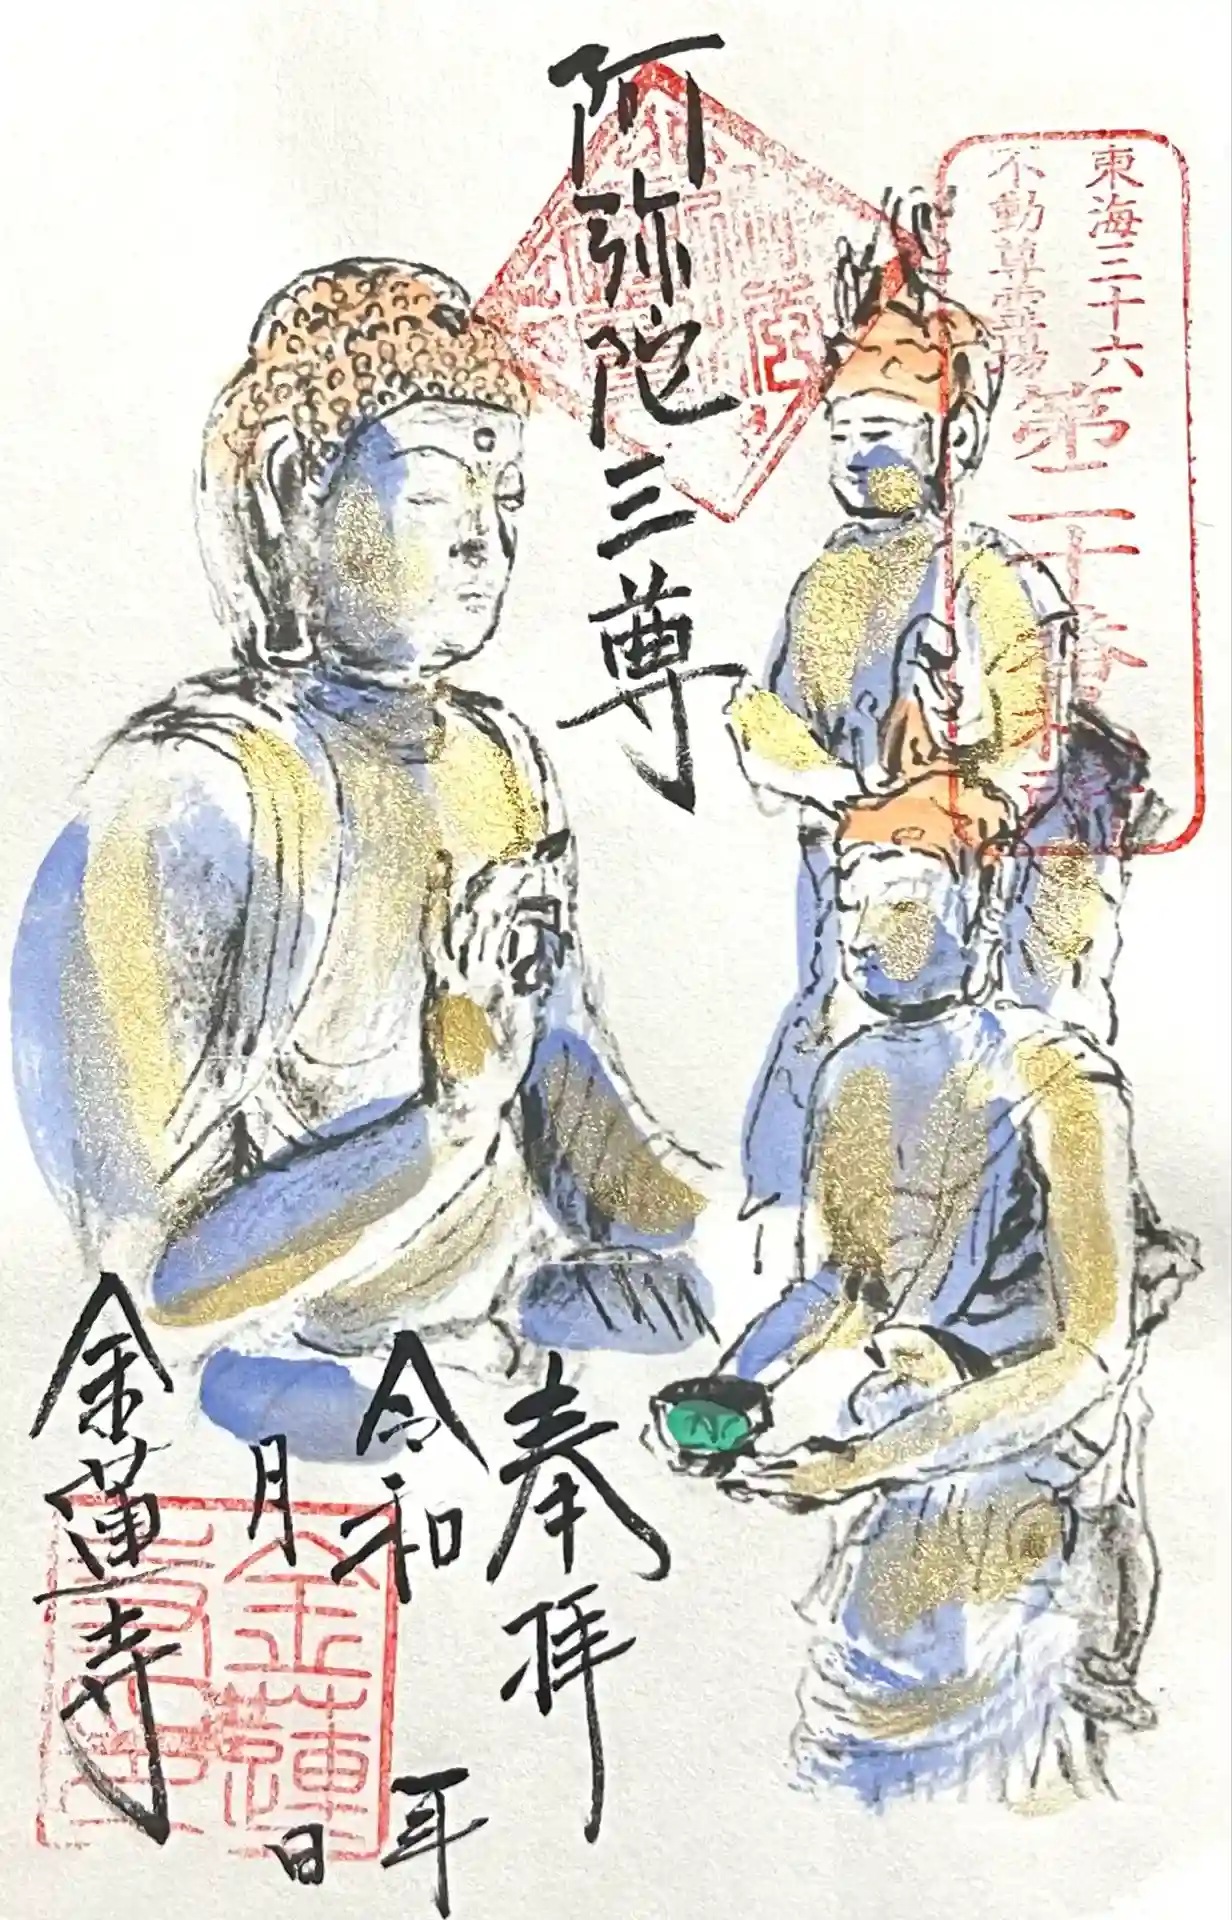 東海三十六
不動尊霊場
第二十番
阿弥陀三尊
奉拝
令和 年
月 日
金蓮寺
金蓮